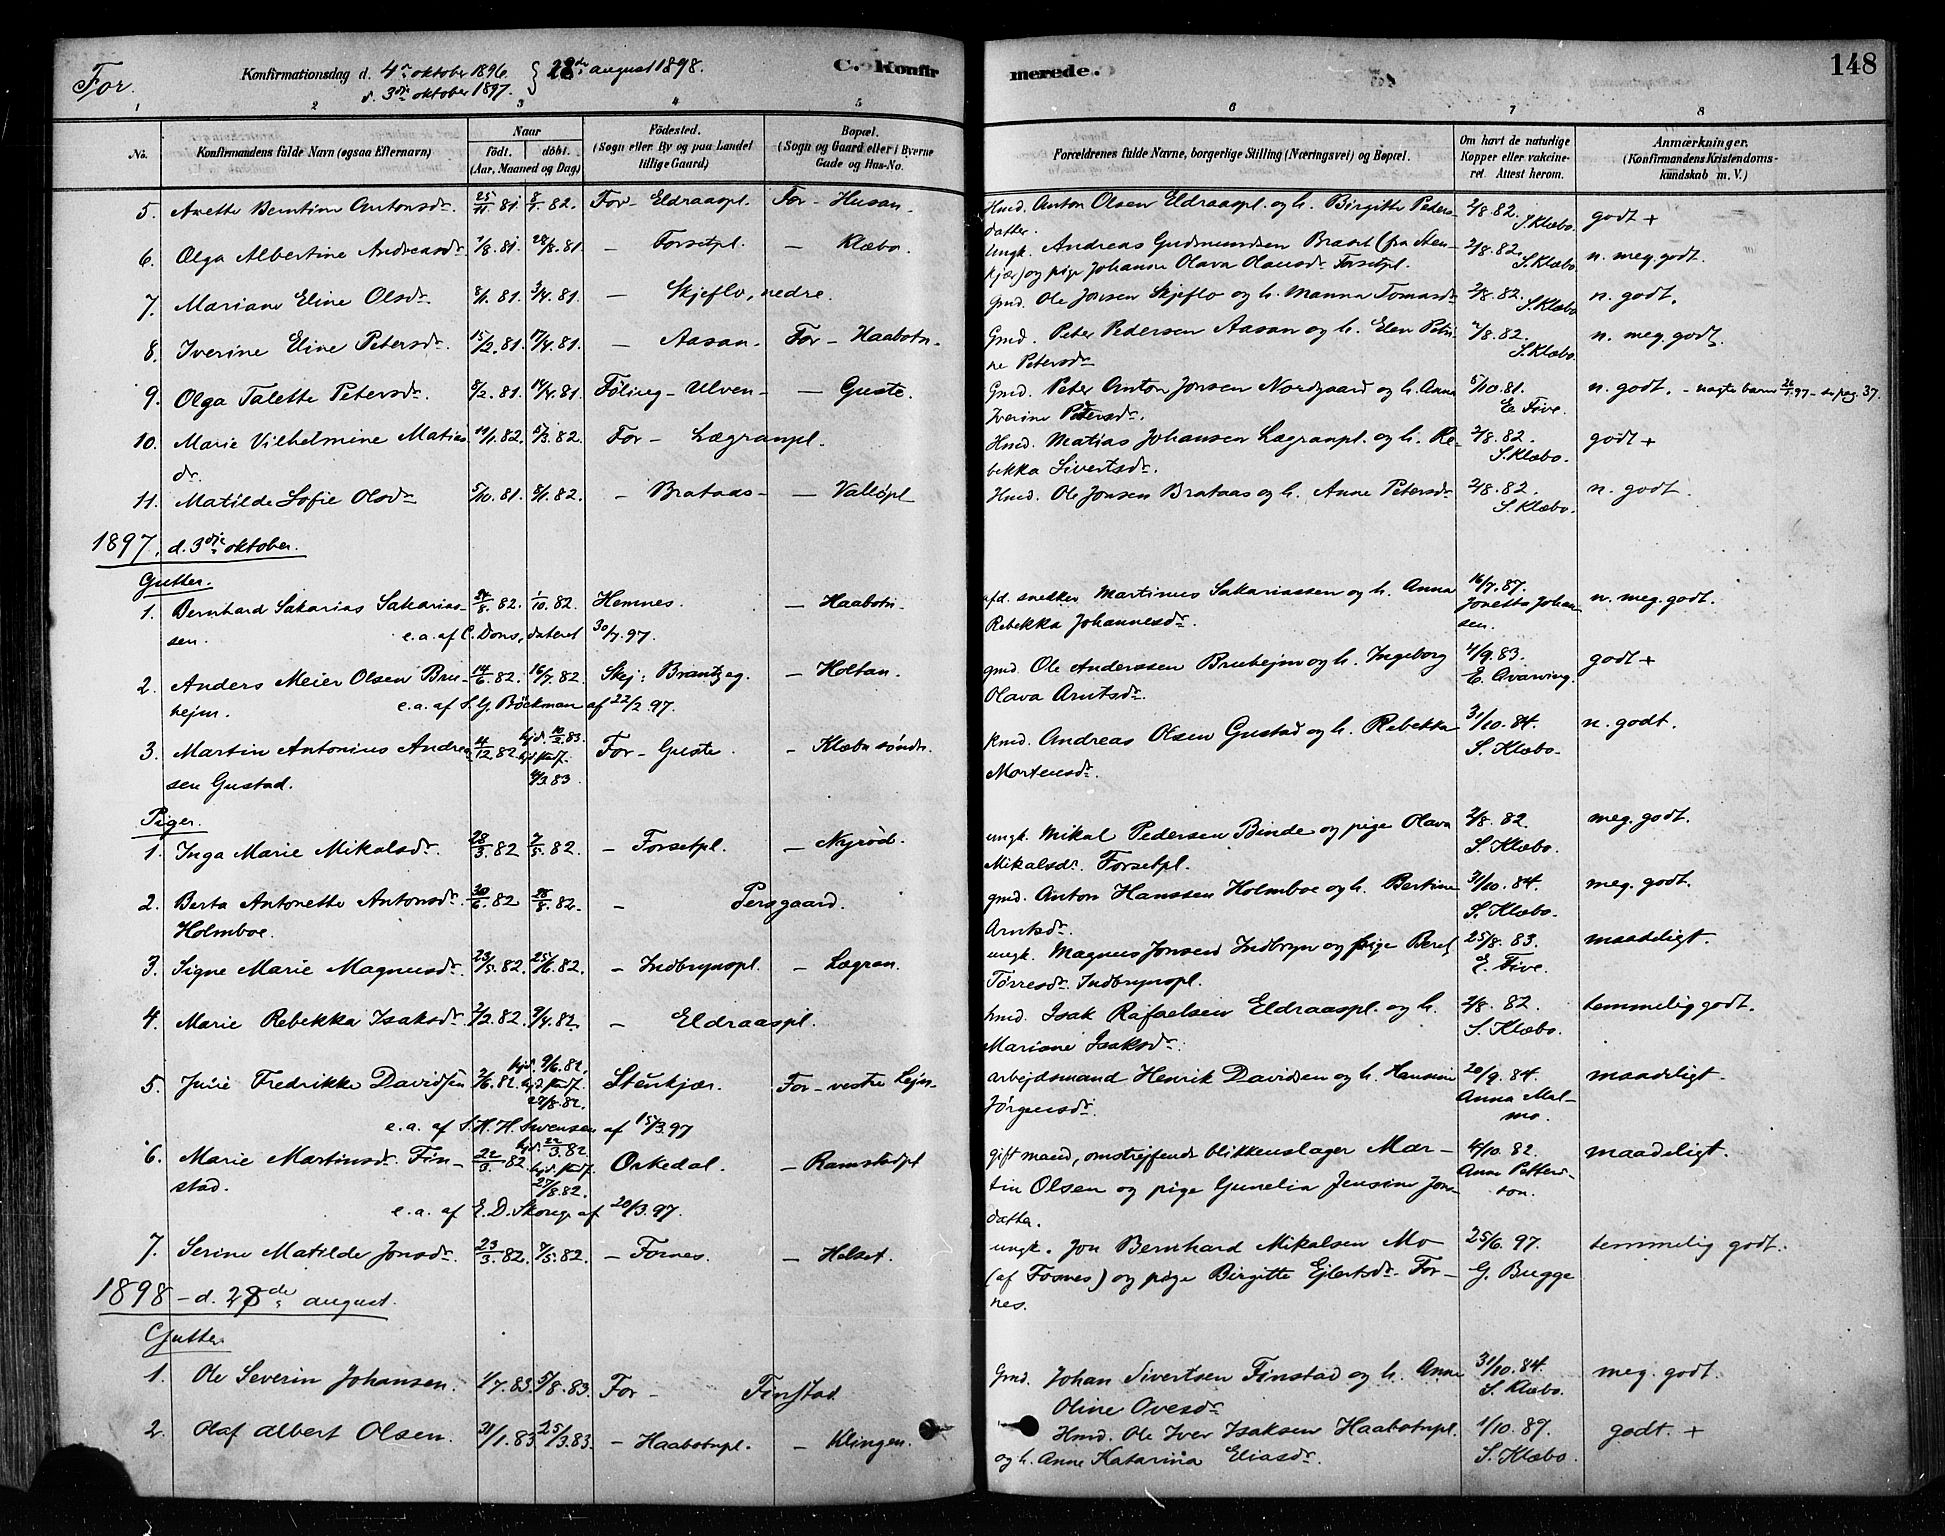 For. Konfirmationsdag d. 4de oktober 1896. 28de august 1898. C. Konfir merede. 148
d. 3die oktober 1897.
1 2 3 4 5 6 7 8
No. Konfirmandens fulde Navn (ogsaa Efternavn) Naar födt. döbt. (Aar, Maaned og Dag) Födested. (Sogn eller By og paa Landet tillige Gaard) Bopæl. (Sogn og Gaard eller i Byerne Gade og Hus-No. Forældrenes fulde Navne, borgerlige Stilling (Næringsvei) og Bopæl. Om havt de naturlige Kopper eller vakcineret. Attest herom. Anmærkninger. (Konfirmandens Kristendomskundskab m. V.)
5. Anette Berntine Antonsdr. 25/11 81. 8/1. 82. For - Eldraaspl. For - Husan. Hmd. Anton Olsen Eldraaspl. og h. Birgitte Peders- 2/8. 82. godt +
datter. S. Klæbo.
6. Olga Albertine Andreasdr. 1/8. 81. 28/8. 81. — Forsetpl. — Klæbo. Ungk. Andreas Gudmundsen Braset (fra Sten- 2/8. 82. n. meg. godt.
kjær) og pige Johanne Olava Olausdr. Forsetpl. S. Klæbo.
7. Mariane Eline Olsdr. 8/1. 81. 3/4. 81. — Skjeflo, nedre. Gmd. Ole Jonsen Skjeflo og h. Manna Tomasdr. 2/8. 82. n. godt.
S. Klæbo
8. Iverine Eline Petersdr. 15/2. 81. 17/4. 81. — Aasan. For - Haabotn. Gmd. Peter Pedersen Aasan og h. Elen Petri- 2/8. 82. n. meg. godt.
ne Petersdr. S. Klæbo.
9. Olga Talette Petersdr. 8/2. 81. 14/4. 81. Følling - Ulven — Guste. Gmd. Peter Anton Jonsen Nordgaard og h. Anna 5/10. 81. n. godt. - nægte barn 97 - se pag. 37.
Iverine Petersdr. E. Five.
10. Marie Vilhelmine Matias 19/1. 82. 5/3. 82. For - Lægranpl. Hmd. Matias Johansen Lægranpl. og h. Re- 2/8. 82. godt +
dr. bekka Sivertsdr. S. Klæbo.
11. Matilde Sofie Olsdr. 5/10. 81. 8/1. 82. — Brataas — Valløpl Hmd. Ole Jonsen Brataas og h. Anne Petersdr. 2/8. 82. n. godt.
S. Klæbo.
1897, d. 3die oktober.
Gutter.
1. Bernhard Sakarias Sakarias- 24/8. 82. 1/10. 82. Hemnes. — Haabotn. afd. snekker Martinus Sakariassen og h. Anna 16/7. 87. n. meg. godt.
sen. e.a. af C. Dons, dateret 30/7. 97. Rebekka Johannesdr. Jonetta Johansen.
2. Anders Meier Olsen Bru- 14/6. 82. 16/7. 82. Skj: Brantzæg. — Holtan. gmd. Ole Anderssen Bruhejm og h. Ingeborg 4/9. 83. godt +
hejm. e.a. af S. G. Böckman af 22/2 97. Olava Arntsdr. E. Qvarving.
3. Martin Antonius Andrea 14/12. 82. hjd. 10/2. 83. For - Guste. — Klæbu søndr. kmd. Andreas Olsen Gustad og h. Rebekka 31/10. 84. n. godt.
sen Gustad. 4/3. 83 Mortensdr. S. Klæbo.
Piger.
1. Inga Marie Mikalsdr. 28/3. 82 7/5. 82. — Forsetpl. — Nyrød. ungk. Mikal Pedersen Binde og pige Olava 2/8. 82. meg. godt.
Mikalsdr. Forsetpl. S. Klæbo.
2. Berta Antonette Antonsdr. 30/6. 82 28/8. 82. — Persgaard. gmd. Anton Hanssen Holmboe og h. Bertine 31/10. 84. meg. godt.
Holmboe. Arntsdr. S. Klæbo.
3. Signe Marie Magnusdr. 23/5. 82. 25/6. 82. — Indbrynspl. — Lægran. ungk. Magnus Jonsen Indbryn og pige Beret 25/8. 83. maadeligt.
Tørresdr. Indbrynspl. E. Five.
4. Marie Rebekka Isaksdr. 7/2. 82. 9/4. 82. — Eldraaspl. hmd. Isak Rafaelsen Eldraaspl. og h. 2/8. 82 temmelig godt.
Mariane Isaksdr. S. Klæbo.
5. Julie Fredrikke Davidsen 2/6. 82. hjd. 9/6. 82. Stenkjær. For - vestre Lejn. arbejdsmand Henrik Davidsen og h. Hansine 20/9. 84. maadeligt.
27/8. 82. Jørgensdr. Anna Malmo.
e.a. af S. H. H. Svensen af 15/3. 97
6. Marie Martinsdr. Fin- 22/3. 82. hjd. 22/3. 82 Orkedal. — Ramstadpl gift mand, omstrejfende blikkenslager Mar- 4/10. 82. maadeligt.
stad. 27/8. 82. tin Olsen og pige Gunelia Jensine Jons Anne Petterson.
e.a. af E. D. Skonge af 20/3. 97. datter.
7. Serine Matilde Jonsdr. 23/3. 82. 7/5. 82. — Fornes. — Helset. ungk. Jon Bernhard Mikalsen Mo 25/6. 97. temmelig godt.
(af Fosnes) og pige Birgitte Ejlertsdr. For- G. Bugge
nes.
1898 - d. 28de august.
Gutter
1. Ole Severin Johansen. 1/7. 83. 5/8. 83. For - Finstad Gmd. Johan Sivertsen Finstad og h. Anne 31/10. 84. meg. godt.
Oline Ovesdr. S. Klæbo.
2. Olaf Albert Olsen. 31/1. 83. 25/3. 83. — Haabotnpl. — Klingen. Hmd. Ole Iver Isaksen Haabotnpl. 1/10. 89. godt. +
og h. Anne Katarina Eliasdr. S. Klæbo.